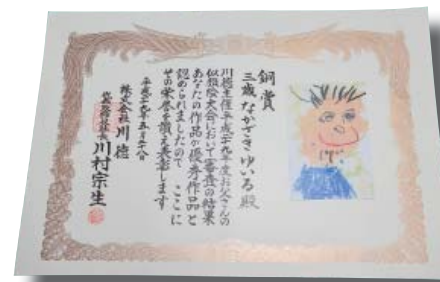 銅賞
三歳 なかざき ゆいる 殿
川徳主催平成二十九年度お父さんの
似顔絵大会において審査の結果
あなたの作品が優秀作品と
認められましたので ここに
その栄誉を讃え表彰します
平成二十九年五月二十八日
株式会社 川徳
代表取締役社長 川村宗生